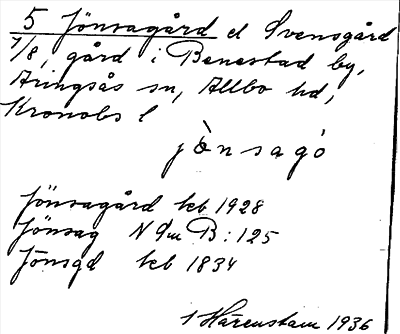 5 Jönsagård el Svensgård
7/8, gård i Benestad by,
Aringsås sn, Allbo hd,
Kronobs l
jònsagó
Jönsagård kb 1928
Jönsag N Qu B:125
Jönsgd kb 1834
1 Härenstam 1936